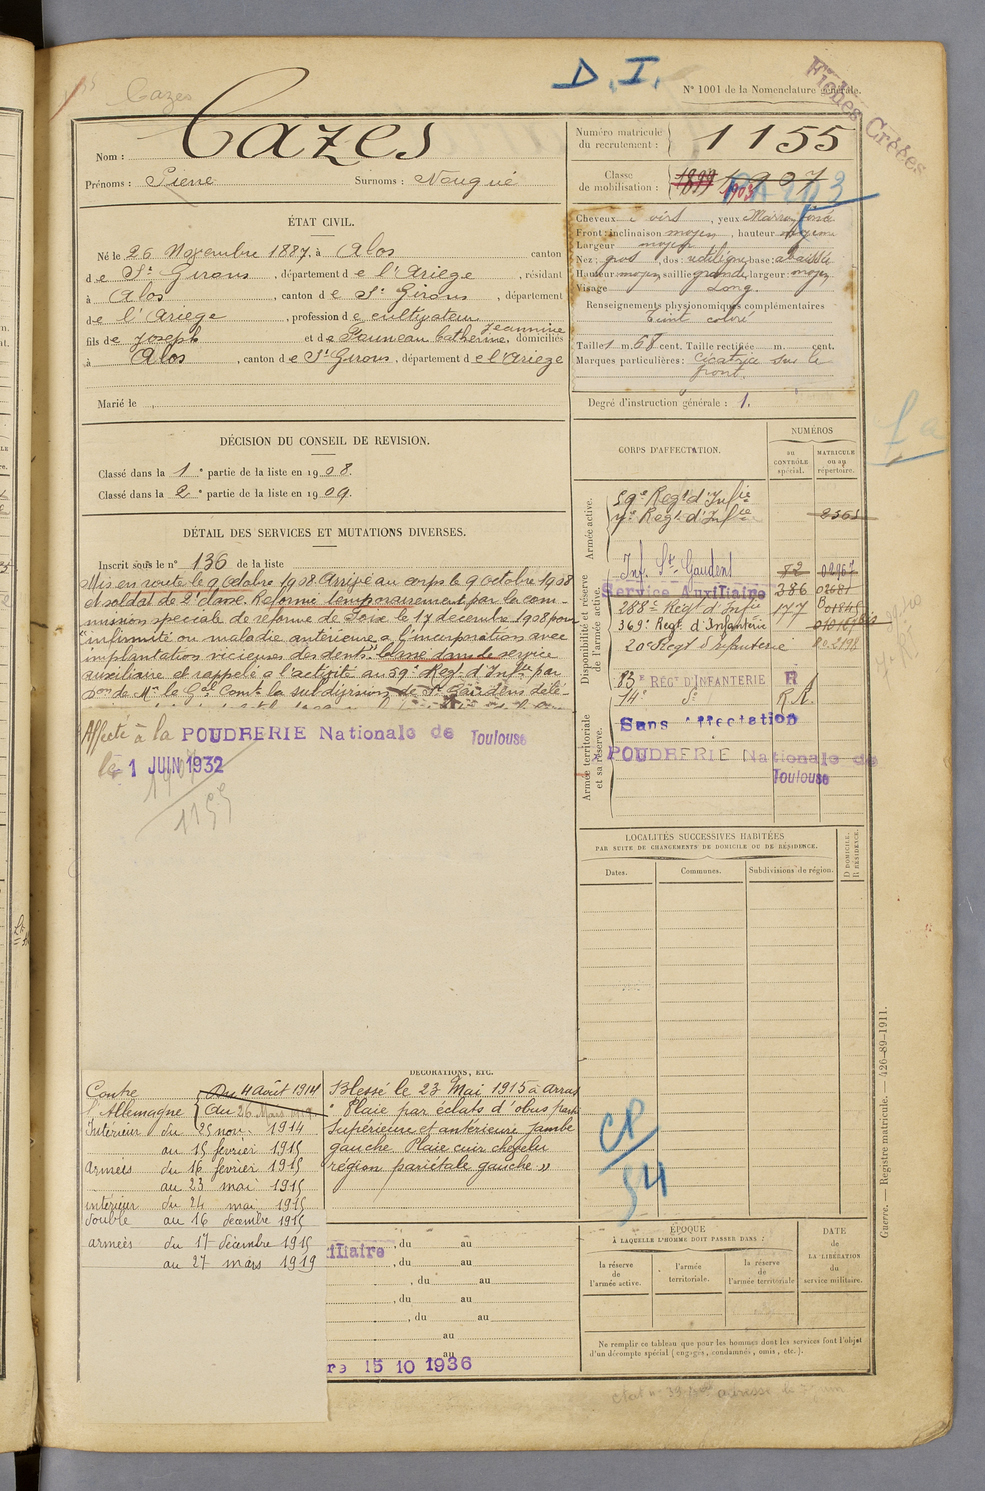 Cazes
D.I.
N° 1001 de la Nomenclature générale.
Fiches Créées
Nom : Cazes
Prénoms : Pierre Surnoms : Nougué
Numéro matricule du recrutement : 1155
Classe de mobilisation : 1907
1903
ÉTAT CIVIL.
Né le 26 Novembre 1887, à Alos canton
de St Girons, département de l'Ariège, résidant
à Alos, canton de St Girons, département
de l'Ariège, profession de cultivateur
fils de Joseph et de Fauneau Catherine, Jeannine domiciliés
à Alos, canton de St Girons, département de l'Ariège
Marié le
Cheveux noirs, yeux Marron foncé
Front : inclinaison moyen, hauteur moyenne
Largeur moyen
Nez : gros, dos : rectiligne, base : abaissée
Hauteur moyen, saillie grande, largeur : moyen
Visage Long.
Renseignements physionomiques complémentaires
Teint coloré
Taille 1 m. 68 cent. Taille rectifiée m. cent.
Marques particulières : Cicatrice sur le
front.
Degré d'instruction générale : 1.
DÉCISION DU CONSEIL DE REVISION.
Classé dans la 1e partie de la liste en 1908.
Classé dans la 2e partie de la liste en 1909.
DÉTAIL DES SERVICES ET MUTATIONS DIVERSES.
Inscrit sous le n° 136 de la liste
Mis en route le 9 octobre 1908 Arrivé au corps le 9 octobre 1908
et soldat de 2e classe. Réformé temporairement par la com-
mission spéciale de réforme de Foix le 17 décembre 1908 pour
"infirmité ou maladie antérieure à l'incorporation avec
implantation vicieuse des dents". Classé dans le service
auxiliaire et rappelé à l'activité au 59e Regt d'Inftie par
Don de Mr le Gal Comt la subdivision de St Gaudens délé-
Affecté à la POUDRERIE Nationale de Toulouse
le 1 JUIN 1932
1907
1155
CORPS D'AFFECTATION.
NUMÉROS
au CONTRÔLE spécial.
MATRICULE ou au répertoire.
Armée active.
59e Regt d'Infie
Regt d'Infie
8363
Disponibilité et réserve de l'armée active.
Inf. St. Gaudens 72
Service Auxiliaire 386
288e Régt d'Infie 177
369e Regt d'Infanterie
20e Regt d'Infanterie
83E REGT D'INFANTERIE R
14e St R.A.
Armée territoriale et sa réserve.
Sans Affectation
POUDRERIE Nationale de
Toulouse
LOCALITÉS SUCCESSIVES HABITÉES
PAR SUITE DE CHANGEMENTS DE DOMICILE OU DE RÉSIDENCE.
Dates. Communes. Subdivisions de région. D DOMICILE. R RÉSIDENCE.
DÉCORATIONS, ETC.
Contre l'Allemagne
Du 4 Août 1914
au 26 Mars 1919
Intérieur du 25 nov. 1914
au 15 février 1915
armées du 16 février 1915
au 23 mai 1915
intérieur du 24 mai 1915
double au 16 décembre 1915
armées du 17 décembre 1915
au 27 mars 1919
Blessé le 23 Mai 1915 à Arras
" Plaie par éclats d'obus partie
supérieure et antérieure jambe
gauche Plaie cuir chevelu
région pariétale gauche "
iliaire, du au
, du au
, du au
, du au
, du au
au
au
15 10 1936
CP
54
ÉPOQUE
À LAQUELLE L'HOMME DOIT PASSER DANS :
la réserve de l'armée active.
l'armée territoriale.
la réserve de l'armée territoriale
DATE de LA LIBÉRATION du service militaire.
Ne remplir ce tableau que pour les hommes dont les services font l'objet
d'un décompte spécial (engagés, condamnés, omis, etc.).
Guerre. — Registre matricule. — 426-89-1911.